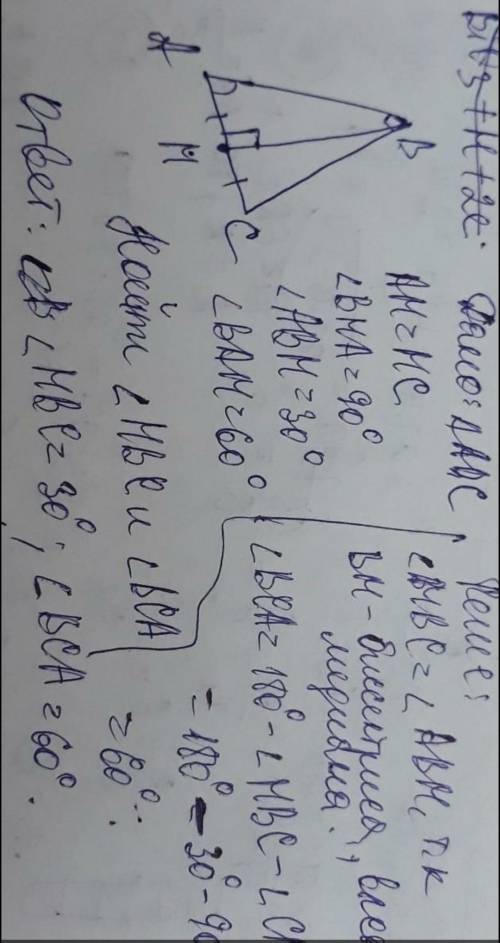 Дано: ΔABC,
AM=MC
∠BMA=90°
∠ABM=30°
∠BAM=60°
Найти ∠MBC и ∠BCA
Решение:
∠MBC=∠ABM, т.к
BM - биссектриса,
медиана.,
∠BCA=180°-∠MBC-∠
=180°-30°-9
=60°.
Ответ: ∠MBC=30°; ∠BCA=60°.
A
B
C
M